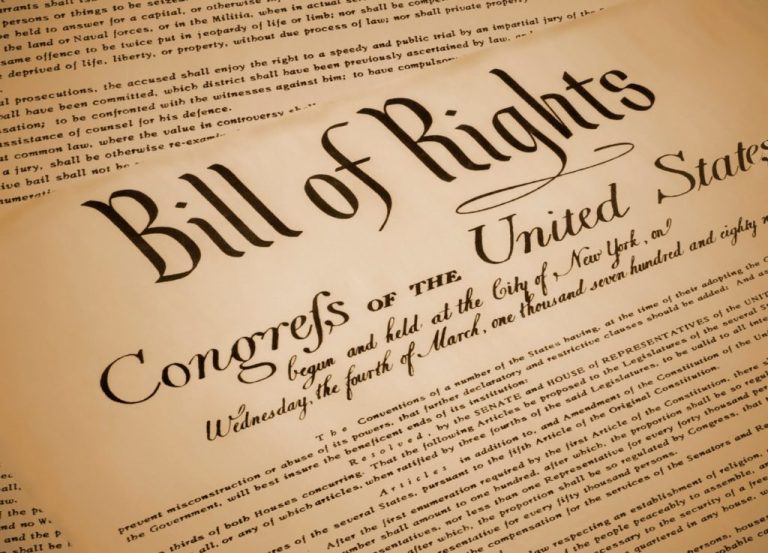 shall
persons or things to be
be held to answer for a capital, or otherwise
the land or Naval forces, or in the Militia, when in actual
same offence to be twice put in jeopardy of life or limb; nor shall be
deprived of life, liberty, or property, without due process of law; nor shall private property
al prosecutions, the accused shall enjoy the right to a speedy and public trial by an impartial jury of the
all have been committed, which district shall have been previously ascertained by law,
sation; to be confronted with the witnesses against him; to have compulso
assistance of counsel for his defence.
at common law, where the value in controversy
a jury, shall be otherwise re-exam
ive bail shall not be
Bill of Rights
Congreſs OF THE United States
begun and held at the City of New York, on
Wednesday, the fourth of March, one thousand seven hundred and eighty
The Conventions of a number of the States having, at the time of their adopting the C
prevent misconstruction or abuse of its powers, that further declaratory and restrictive clauses should be added: And as
the Government, will best insure the beneficent ends of its institution:
Resolved, by the SENATE and HOUSE of REPRESENTATIVES of the UNITE
thirds of both Houses concurring. That the following Articles be proposed to the Legislatures of the several S
all, or any of which articles, when ratified by three fourths of the said Legislatures, to be valid to all inte
Articles in addition to, and Amendment of the Constitution of the Uni
of the several States, pursuant to the fifth Article of the Original Constitution.
After the first enumeration required by the first Article of the Constitution, there sh
number shall amount to one hundred, after which, the proportion shall be so regulat
Representatives, nor less than one Representative for every forty thousand per
which, the proportion shall be so regulated by Congress, that
for every fifty thousand persons.
compensation for the services of the Senators and Re
respecting an establishment of religion,
the people peaceably to assemble, and
necessary to the security of a free